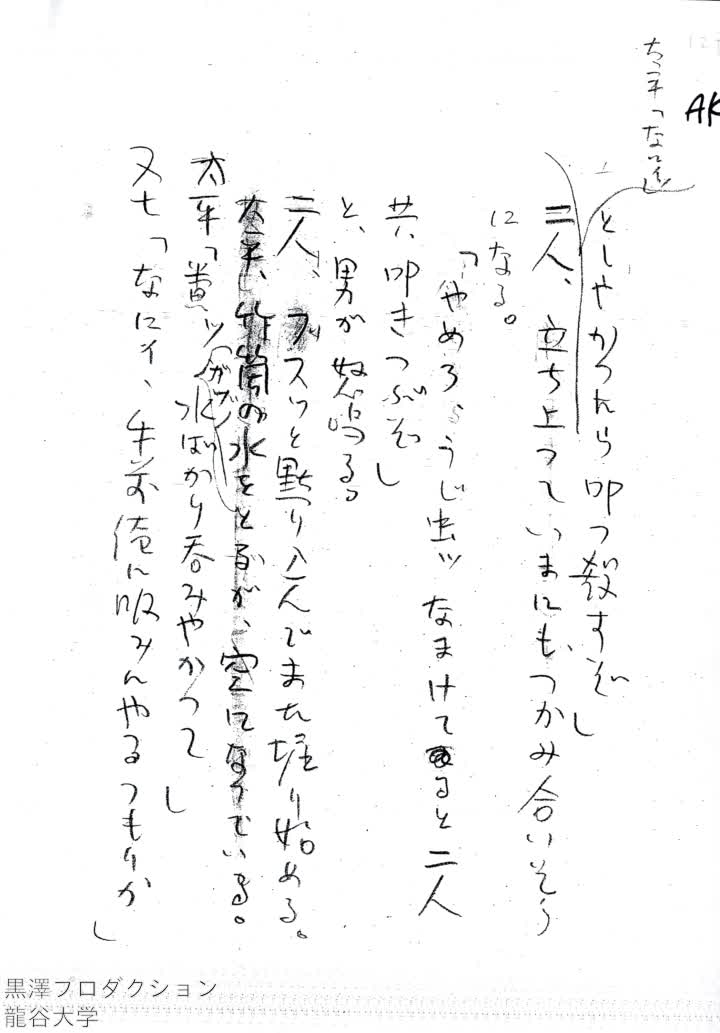 AK
太平「な
としやがつたら叩つ殺すぞ」
二人、立ち上つていまにもつかみ合いそう
になる。
「やめろ、うじ虫ッなまけてると二人
共、叩きつぶすぞ」
と、男が怒鳴る。
二人、ブスッと黙り込んでまた堀り始める。
太平、竹筒の水をとるが、空になつている。
太平「糞ッ、ガブ〳〵水ばかり呑みやがつて」
又七「なにィ、手前俺に
やるつもりか」
黒澤プロダクション
龍谷大学